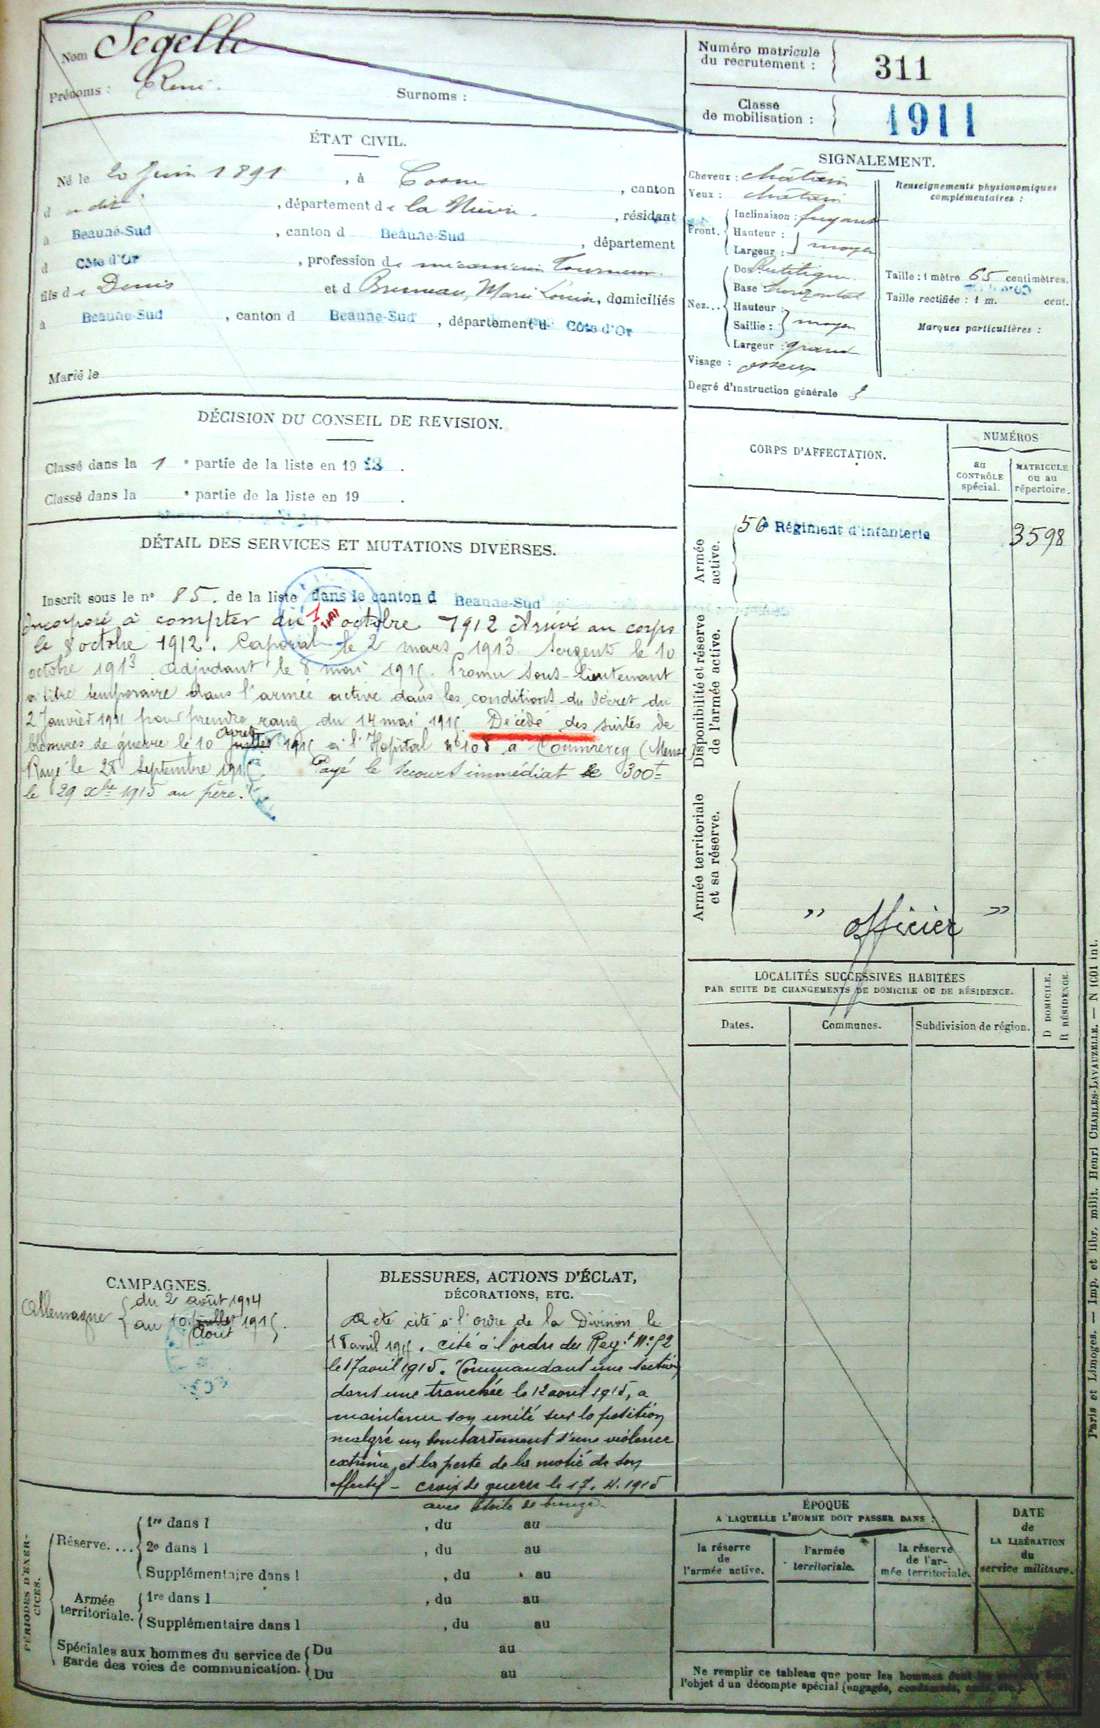 Nom Segelle
Prénoms : René.
Surnoms :
Numéro matricule
du recrutement :
311
Classe
de mobilisation :
1911
ÉTAT CIVIL.
Né le 20 Juin 1891, à Cosne, canton
d dit, département de la Nièvre, résidant
à Beaune-Sud, canton d Beaune-Sud, département
d Côte d'Or, profession de mécanicien Tourneur
fils de Denis et d Bruneau, Marie Louise, domiciliés
à Beaune-Sud, canton d Beaune-Sud, département d Côte d'Or
Marié le
SIGNALEMENT.
Cheveux : châtain
Yeux : châtain
Front. Inclinaison : fuyant
Hauteur :
Largeur : moyen
Nez... Dos rectiligne
Base horizontal
Hauteur :
Saillie : moyen
Largeur : grand
Visage : osseux
Degré d'instruction générale 3
Renseignements physionomiques
complémentaires :
Taille : 1 mètre 65 centimètres.
Taille rectifiée : 1 m. cent.
Marques particulières :
DÉCISION DU CONSEIL DE REVISION.
Classé dans la 1e partie de la liste en 19
Classé dans la e partie de la liste en 19 .
DÉTAIL DES SERVICES ET MUTATIONS DIVERSES.
Inscrit sous le no 85. de la liste dans le canton d Beaune-Sud
Incorporé à compter du 1 octobre 1912 Arrivé au corps
le 8 octobre 1912. Caporal le 2 mars 1913. Sergent le 10
octobre 1913 Adjudant le 8 mai 1915. Promu Sous-lieutenant
à titre temporaire dans l'armée active dans les conditions du décret du
2 Janvier 1915 pour prendre rang du 14 mai 1915 Décédé des suites de
blessures de guerre le 10 juillet 1915 à l'Hopital no 108 à Commercy (Meuse)
Rayé le 28 Septembre 1915 Payé le secours immédiat de 300f
le 29 Xbre 1915 au père.
CORPS D'AFFECTATION.
NUMÉROS
au
CONTRÔLE
spécial.
MATRICULE
ou au
répertoire.
Armée
active.
56e Régiment d'infanterie
3598
Disponibilité et réserve
de l'armée active.
Armée territoriale
et sa réserve.
" officier "
LOCALITÉS SUCCESSIVES HABITÉES
PAR SUITE DE CHANGEMENTS DE DOMICILE OU DE RÉSIDENCE.
Dates.
Communes.
Subdivision de région.
D DOMICILE.
R RÉSIDENCE.
CAMPAGNES.
Allemagne du 2 août 1914
au 10 juillet 1915.
Août
BLESSURES, ACTIONS D'ÉCLAT,
DÉCORATIONS, ETC.
A été cité à l'ordre de la Division le
18 avril 1915. cité à l'ordre du Regt No 52
le 17 avril 1915. Commandant une section
dans une tranchée le 12 aout 1915, a
maintenu son unité sur la position
malgré un bombardement d'une violence
extrême et la perte de la moitié de son
effectif - croix de guerre le 17. 4. 1915
avec étoile de bronze.
PÉRIODES D'EXERCICES.
Réserve....
1re dans l , du au
2e dans l , du au
Supplémentaire dans l , du au
Armée
territoriale.
1re dans l , du au
Supplémentaire dans l , du au
Spéciales aux hommes du service de
garde des voies de communication.
Du au
Du au
ÉPOQUE
A LAQUELLE L'HOMME DOIT PASSER DANS :
la réserve
de
l'armée active.
l'armée
territoriale.
la réserve
de l'ar-
mée territoriale.
DATE
de
LA LIBÉRATION
du
service militaire.
Ne remplir ce tableau que pour les hommes
l'objet d'un décompte spécial (engagés,
Paris et Limoges. — Imp. et libr. milit. Henri CHARLES-LAVAUZELLE. — N 1001 int.